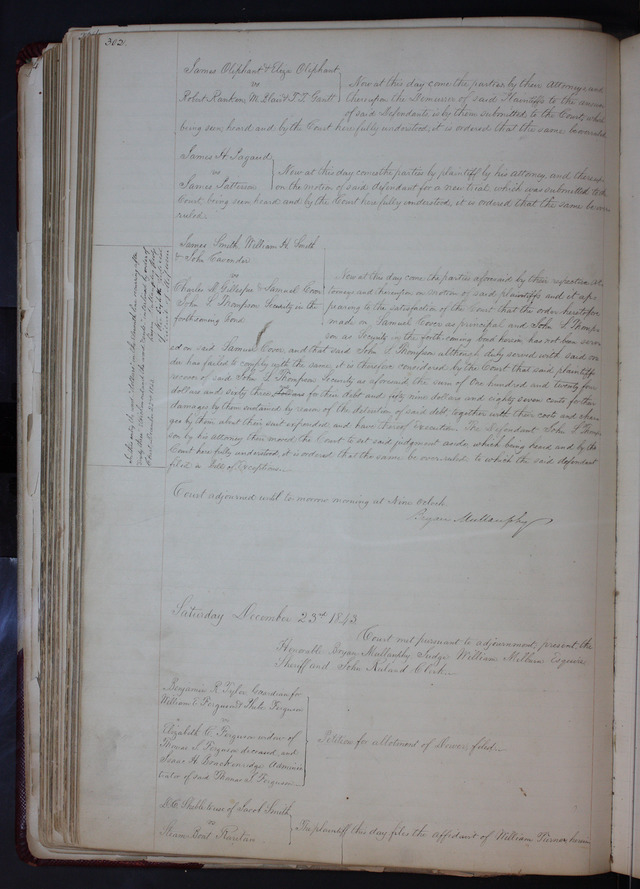 302.
James Oliphant & Eliza Oliphant
vs
Robert Rankin, M. Blair & T. T. Gantt
Now at this day come the parties by their Attorneys and
thereupon the Demurrer of said Plaintiffs to the answer
of said Defendants is by them submitted to the Court, which
being seen heard and by the Court here fully understood, it is ordered that the same be overruled.
James H. Pagaud
vs
James Patterson
Now at this day comes the parties by plaintiff by his Attorney and thereup
on the motion of said defendant for a new trial which was submitted to the
Court, being seen heard and by the Court here fully understood, it is ordered that the same be over
ruled.
James Smith, William H. Smith
& John Cavender
vs
Charles A. Gillespie & Samuel Coon
John L Thompson Security in the
forthcoming bond
Now at this day come the parties aforesaid by their respective at
torneys and thereupon on motion of said plaintiffs and it ap
pearing to the satisfaction of the Court that the order heretofore
made on Samuel Coon as principal and John L Thomp
son as Security in the forthcoming bond herein has not been serv
ed on said Samuel Coon, and that said John L Thompson although duly served with said or
der has failed to comply with the same, it is therefore considered by the Court that said plaintiffs
recover of said John L Thompson Security as aforesaid the sum of One hundred and twenty four
dollars and sixty three for their debt and fifty nine dollars and eighty seven cents for their
damages by them sustained by reason of the detention of said debt together with their costs and char
ges by them about their suit expended and have thereof Execution. The Defendant John L Thomp
son by his attorney then moved the Court to set said judgement aside, which being heard and by the
Court here fully understood, it is ordered that the same be overruled to which the said defendant
filed a Bill of Exceptions.
Court adjourned until to morrow morning at Nine Oclock.
Bryan Mullanphy
Saturday December 23rd 1843
Court met pursuant to adjournment, present, the
Honorable Bryan Mullanphy Judge William Milburn Esquire
Sheriff and John Ruland Clerk.
Benjamin R. Tyler Guardian for
William E Ferguson & Phile. Ferguson
vs
Elizabeth C. Ferguson widow of
Thomas S. Ferguson deceased, and
Isaac H. Brackenridge Adminis
trator of said Thomas S. Ferguson
Petition for allotment of Dower filed.
use of Jacob Smith
vs
Steam Boat Raritan
The plaintiff this day files the affidavit of William Turner